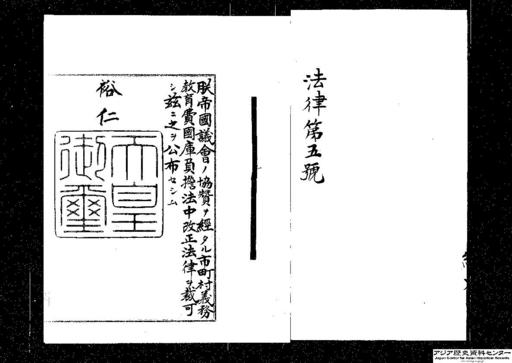 法律第五號
朕帝國議會ノ協贊ヲ經タル市町村義務
教育費國庫負擔法中改正法律ヲ裁可
シ茲ニ之ヲ公布セシム
裕仁
天皇
御璽
アジア歴史資料センター
Japan Center for Asian Historical Records